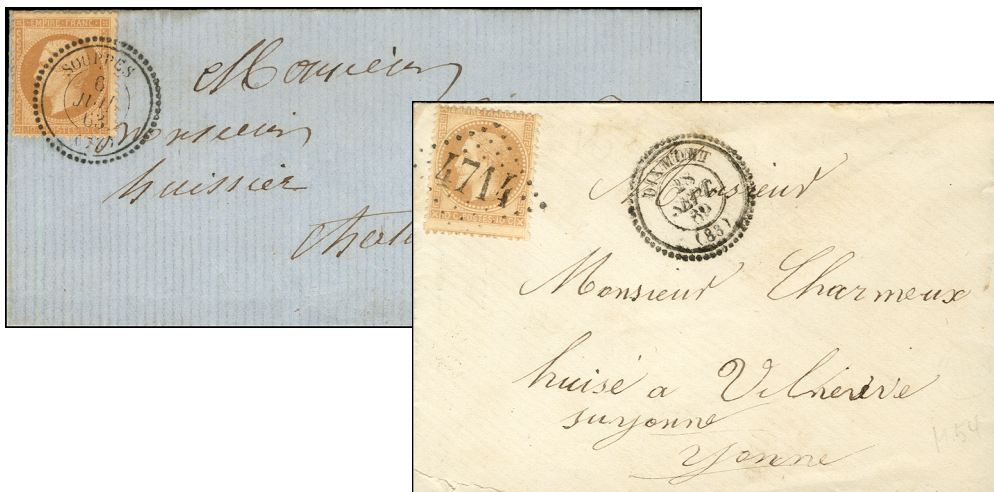 EMPIRE FRANC
SOUPPES
6
JUIL
63
Monsieur
Monsieur
huissier
4714
DIXMONT
28
SEPT.
69
(83)
Monsieur
Monsieur Charmeux
huisé a Vilneuve
suryonne
Yonne
1154